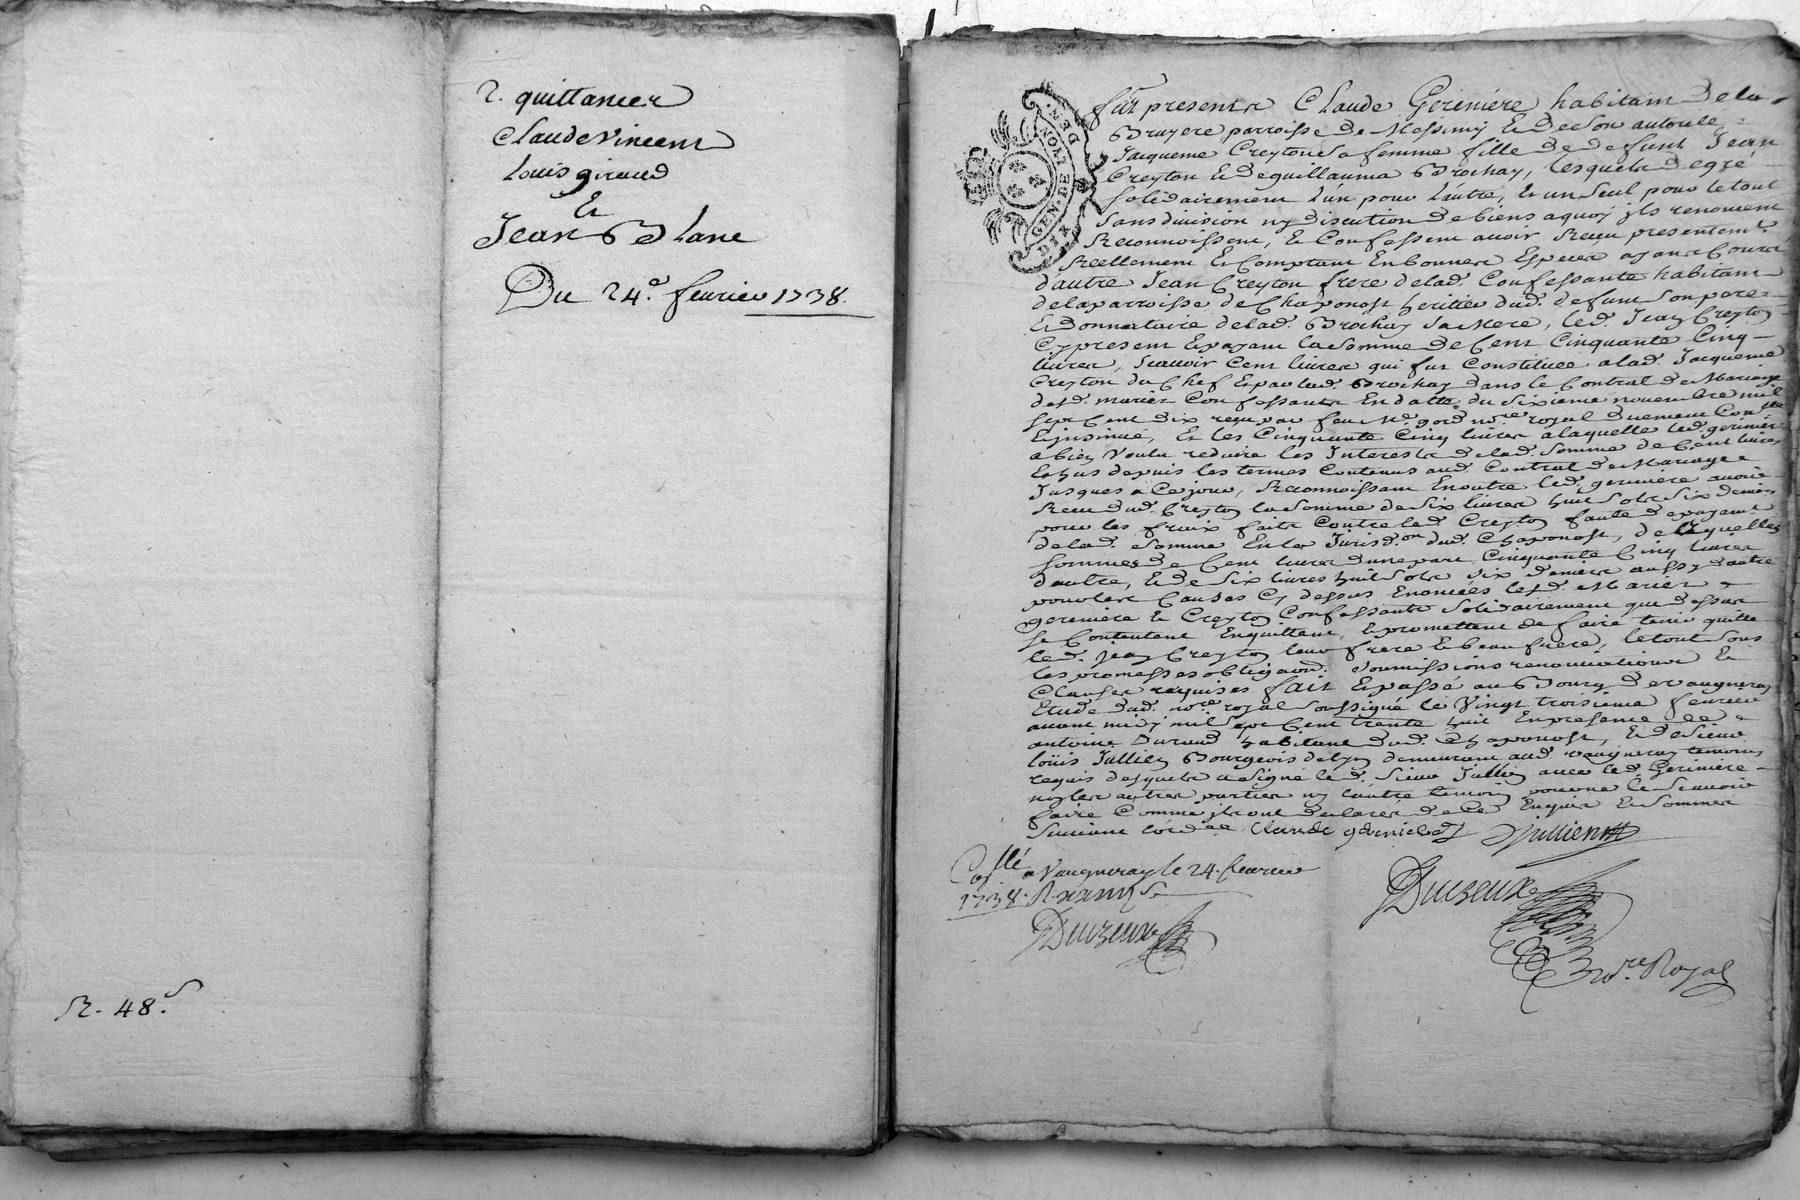 2. quittances
Claude Vincent
Louis giraud
Et
Jean Blanc
Du 24.e fevrier 1738.
R. 48.s
GEN. DE LYON
DIX DEN.
fut present Claude Geriniere habitant De la
Bruyere parroisse de Messimy & de son autorité
Jacqueme Creyton sa femme fille de defunt Jean
Creyton & De guillauma Brochay, lesquels de gré
solidairement l'un pour l'autre, & un seul pour le tout
sans division ny discution De biens a quoy ils renoncent
Reconnoissent, & Confessent avoir Receu presentemt.
Reellement & Comptant En bonnes Especes ayant Cours
d'autre Jean Creyton frere de lad. Confessante habitant
de la parroisse de Chaponost heritier dud. defunt son pere
& Donnataire de lad. Brochay sa Mere, led. Jean Creyton
Cy present & payant la somme de Cent Cinquante Cinq
livres, sçauoir Cent livres qui fut Constituée a lad. Jacqueme
Creyton du Chef & par lad. Brochay dans le Contrat de Mariage
desd. mariez Confessants En datte du sixieme novembre mil
sept Cent dix reçu par feu Me. gord nore. royal duement Conllé
& jnsinué, & les Cinquante Cinq livres a laquelle led. geriniere
a bien voulu reduire les Interests de lad. somme de Cent livres
Echus depuis les termes Contenus aud. Contrat de Mariage
Jusques a Ce jour, Reconnoissant En outre led. geriniere avoir
Receu dud. Creyton la somme de six livres huit sols six deniers
pour les fraix faits Contre led. Creyton faute de payement
de lad. somme En la Jurisd.on dud. Chaponost, desquelles
sommes de Cent livres d'une part Cinquante Cinq livres
d'autre, & de six livres huit sols six deniers aussy d'autre
pour les Causes Cy dessus Enoncées lesd. Mariez
geriniere & Creyton Confessants solidairement que dessus
se Contentent En quittent, & promettent de faire tenir quitte
led. Jean Creyton leur frere & beau frere, le tout sous
les promesses obligaons. soumissions renonciations &
Clauses requises fait & passé au Bourg de vaugneray
Etude dud. nore. royal soussigné le Vingt troisieme fevrier
avant midy mil sept Cent trente huit En presence de
antoine Durand habitant dud. Chaponost, & de sieur
loüis Jullien Bourgeois de lyon demeurant aud. vaugneray temoins
requis desquels a signé led. sieur Jullien avec led. Geriniere
non les autres parties ny l'autre temoin pour ne le sçauoir
faire Comme ils ont declaré de Ce Enquis & sommés
Claude geriniere Jullien
Conllé a Vaugneray le 24. fevrier
1738. R
Duizeux
Duizeux
Nore. Royal